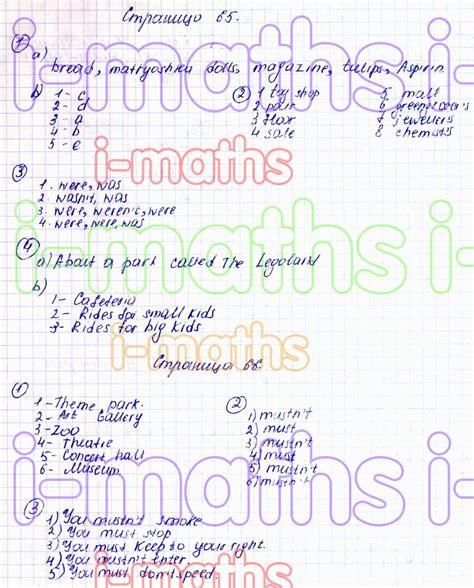 Страница 65.
1
a)
bread, matryoshka dolls, magazine, tulips, Aspirin
b) 1 - c
2 - d
3 - a
4 - b
5 - e
2 1 toy shop
2 pair
3 floor
4 sale
5 mall
6 greengrocer's
7 jeweller's
8 chemist's
i-maths
i-maths
3
1. were, was
2. wasn't, was
3. were, weren't, were
4. were, were, was
i-maths
4
a) About a park called The Legoland
b)
1 - Cafeteria
2 - Rides for small kids
3 - Rides for big kids
i-maths
Страница 68
1
1 - Theme park.
2 - Art Gallery
3 - Zoo
4 - Theatre
5 - Concert hall
6 - Museum
2
1) mustn't
2) must
3) mustn't
4) must
5) mustn't
6) mustn't
i-maths
3
1) You mustn't smoke
2) You must stop
3) You must keep to your right.
4) You mustn't enter
5) You must don't speed